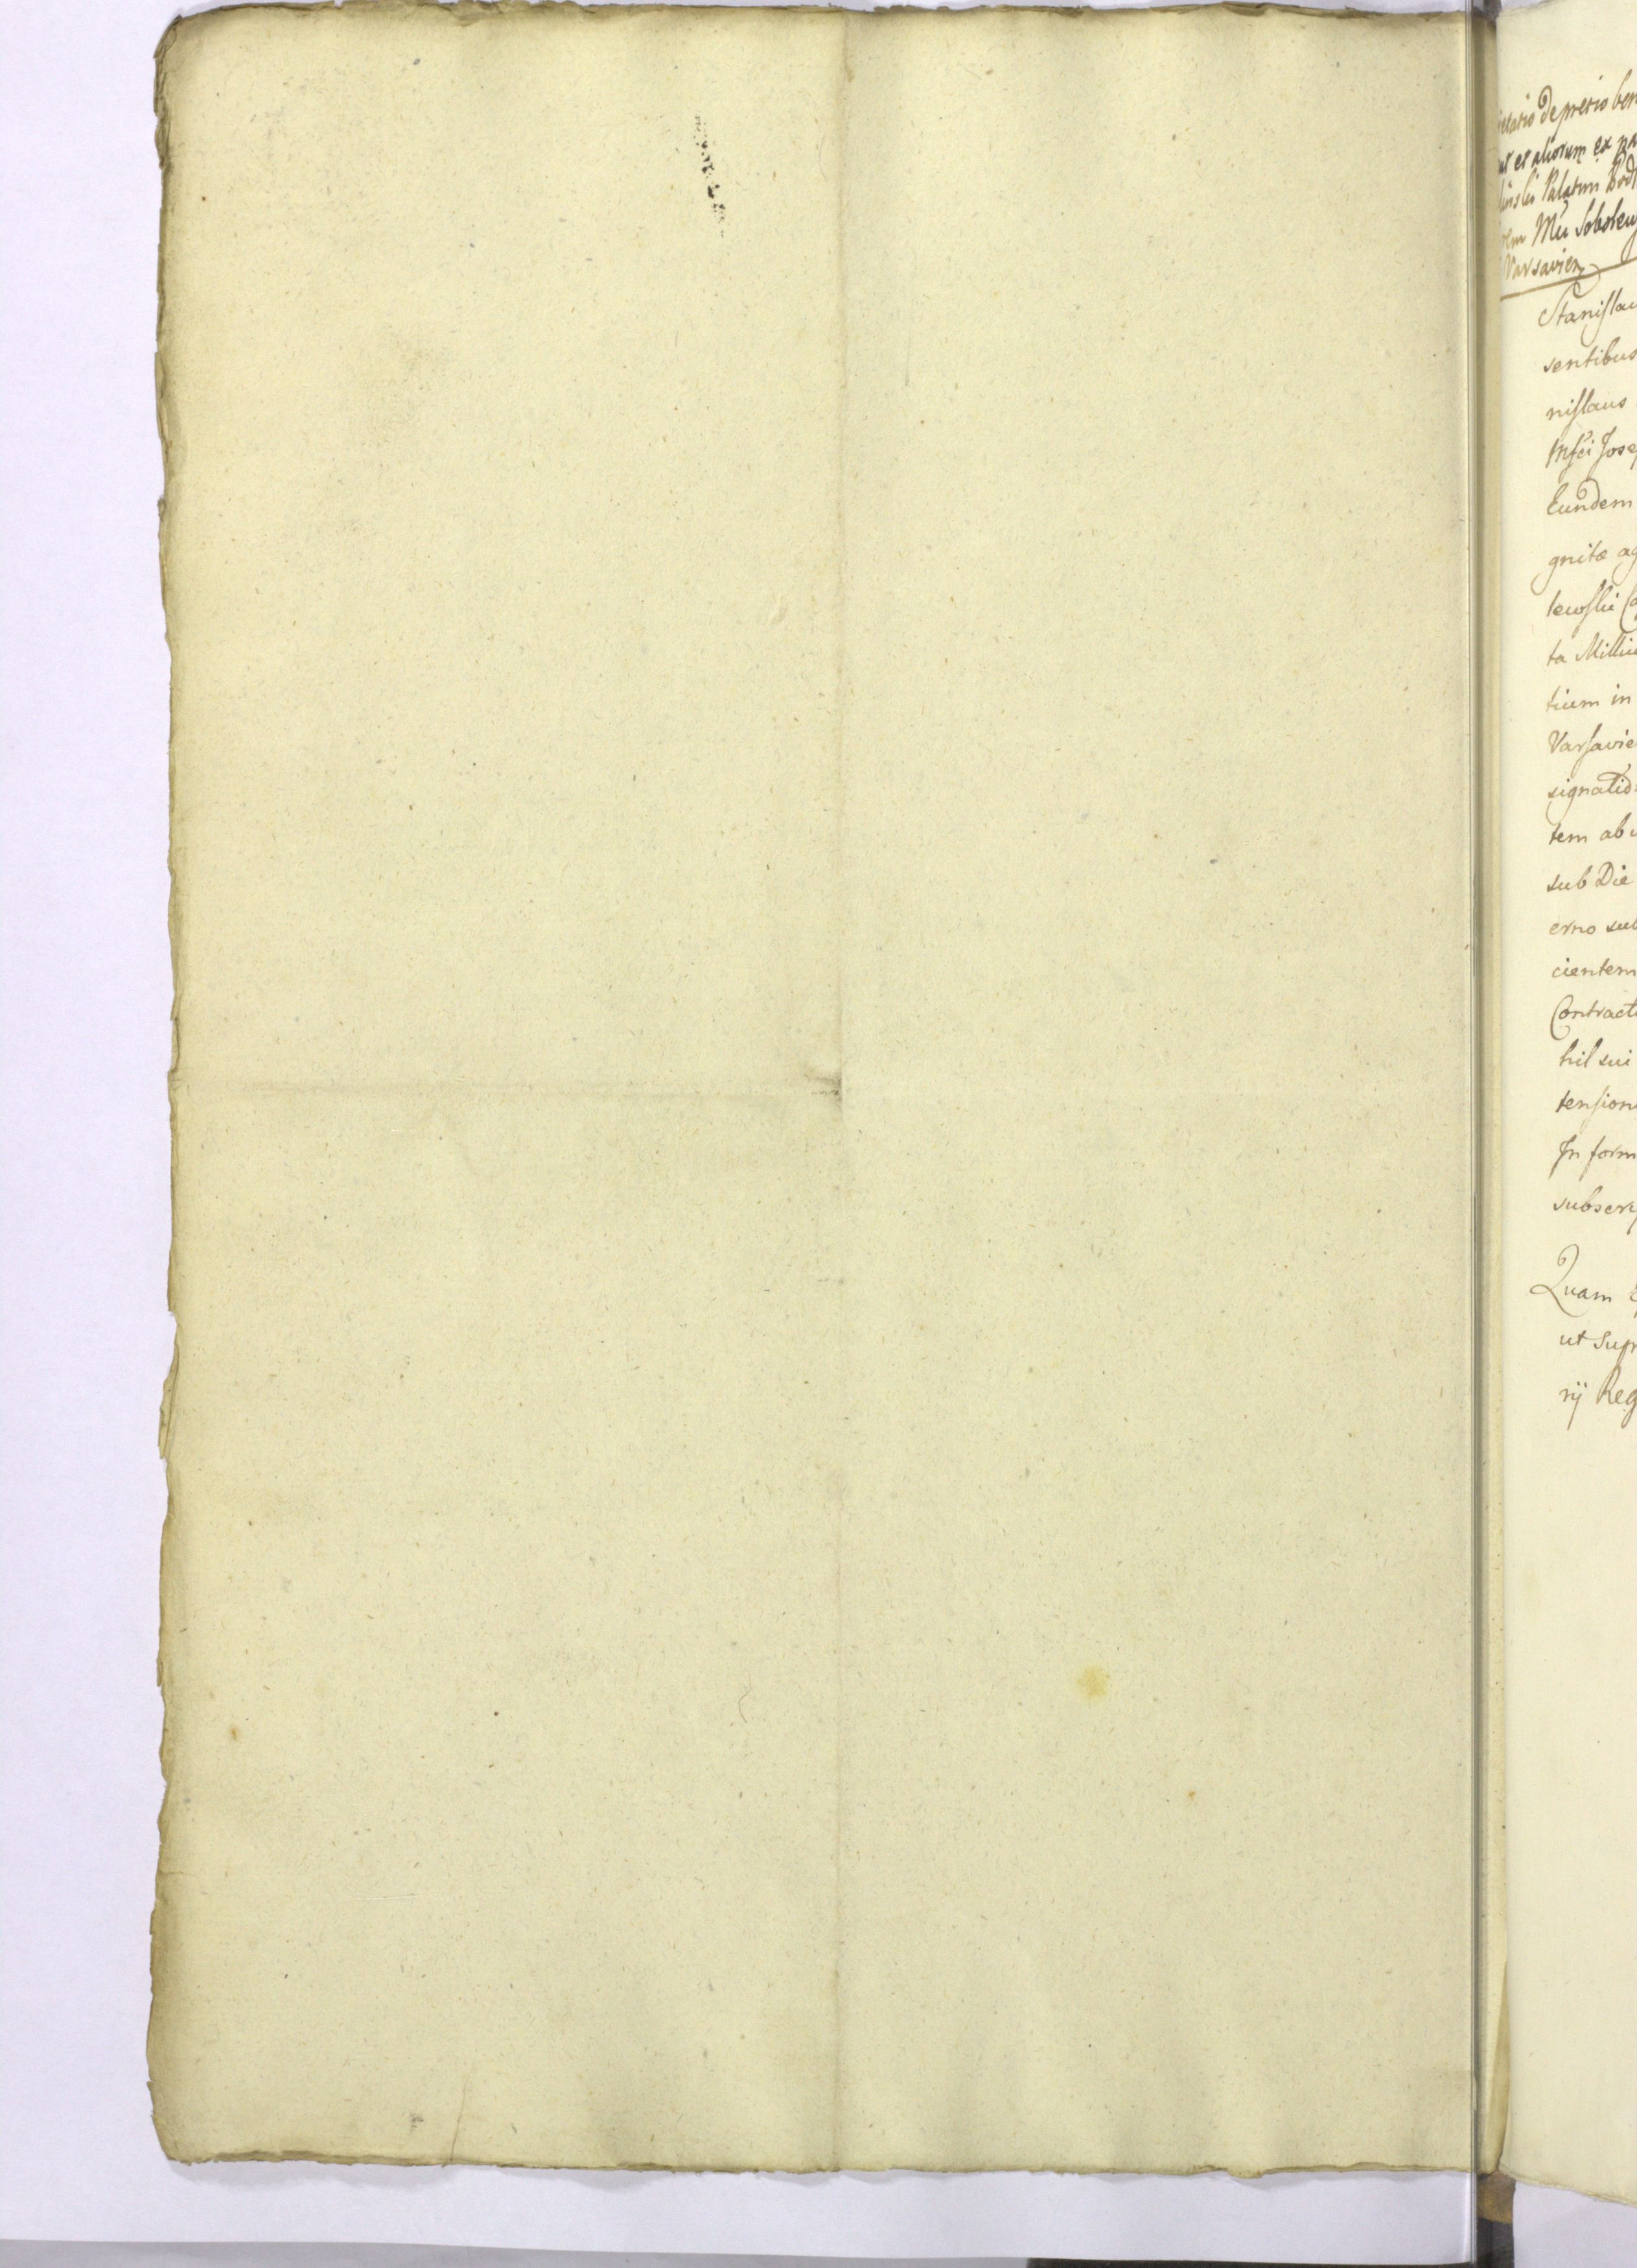 de pretio
et aliorum ex
Palatini
Varsavien
Stanislau
sentibus
nislaus
Mfci Jose
Eundem
gnitæ ag
lewski
ta Milliu
tium in
Varsavie
signatio
tem ab
sub Die
erno sub
cientem
Contract
hil sui
tension
In form
subscrip
Quam
ut Supr
rij Reg